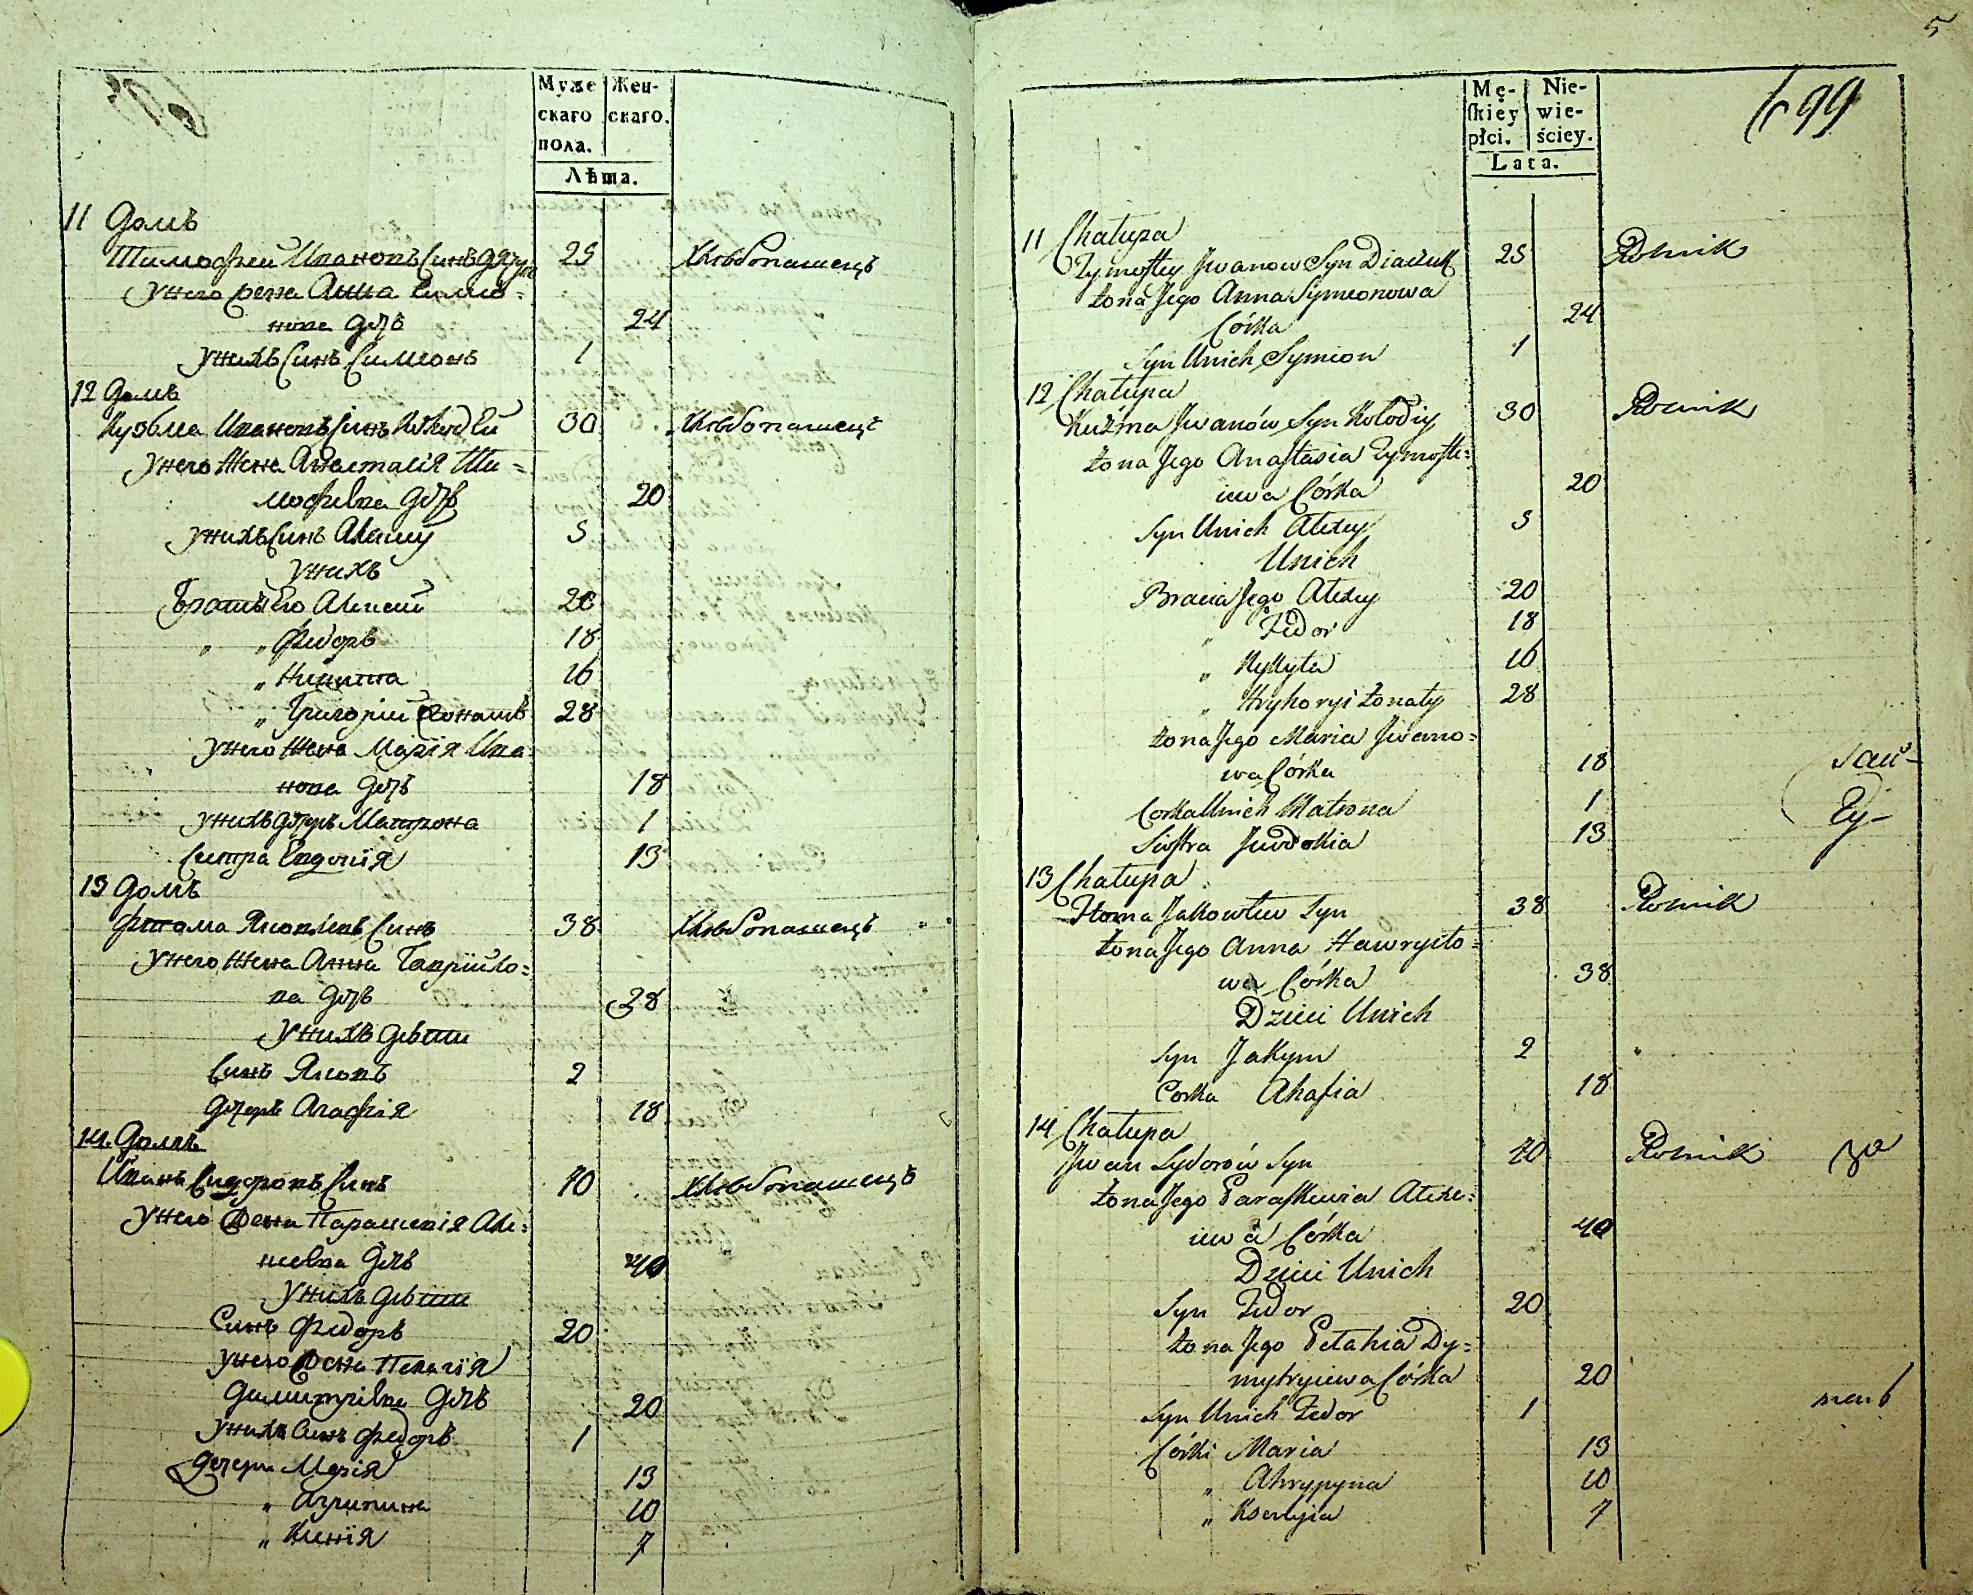 Муже
скаго
пола.
Жен-
скаго.
Лѣта.
11 Домъ
Тимофей Ивановъ Синъ Дячук 25 Хлѣбопашецъ
у него Жена Анна Симео-
нова Дочь 24
у нихъ Синъ Симеонъ 1
12 Домъ
Кузьма Ивановъ Синъ Колодѣй 30 Хлѣбопашецъ
у него Жена Анастасія Ти-
мофѣева Дочь 20
у нихъ Синъ Алексѣй 5
у нихъ
Братья Его Алексей 20
„ „ Федоръ 18
„ Никита 16
„ Григорій Женатъ 28
у него Жена Марія Ива
нова Дочь 18
у нихъ дочеръ Матрона 1
Сестра Евдокія 13
13 Домъ
Фтома Яковлевъ Синъ 38 Хлѣбопашецъ
у него Жена Анна Гаврійло-
ва Дочь 28
у нихъ Дѣти
Синъ Яковъ 2
Дочеръ Агафія 18
14. Домъ
Иванъ Сидоровъ Синъ 40 Хлѣбопашецъ
у него Жена Параскевія Але-
ксеева Дочь 40
у нихъ Дѣти
Синъ Федоръ 20
у него Жена Пелагія
Димитріева Дочь 20
у нихъ Синъ Федоръ 1
Дочери Марія 13
„ Агрипина 10
„ Ксенія 7
5
Mę-
ſkiey
płci.
Nie-
wie-
ściey.
Lata.
699
11 Chałupa
Tymoftey Jwanow Syn Diaczuk 25 Rolnik
żona Jego Anna Symeonowa
Córka 24
Syn Unich Symion 1
12 Chałupa
Kuźma Jwanów Syn Kołodiy 30 Rolnik
żona Jego Anaſtasia Tymofte-
iewa Córka 20
Syn Unich Alexey 5
Unich
Bracia Jego Alexey 20
„ Fedor 18
„ Nykyta 16
„ Hryhoryi żonaty 28
żona Jego Maria Jwano-
wa Córka 18
Corka Unich Matrona 1
Siostra Jewdokia 13
13 Chałupa
Ftoma Jakowlew Syn 38 Rolnik
żona Jego Anna Hawryiło-
wa Córka 38
Dzieci Unich
Syn Jakym 2
Corka Ahafia 18
14 Chałupa
Jwan Sydorów Syn 40 Rolnik за
żona Jego Paraſkewia Alexe-
iewa Córka 40
Dzieci Unich
Syn Fedor 20
żona Jego Pelahia Dy-
mytryiewa Córka 20
Syn Unich Fedor 1
Córki Maria 13
„ Ahrypyna 10
„ Kseniyia 7